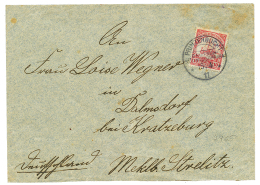 An
Frau Loise Wegner
in
Dalmsdorf
bei Kratzeburg
Deutschland Meklb. Strelitz.